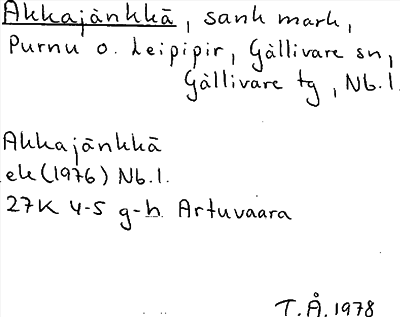 Akkajänkkä, sank mark,
Purnu o. Leipipir, Gällivare sn,
Gällivare tg, Nb.l.
Akkajänkkä
ek (1976) Nb.l.
27K 4-5 g-h Artuvaara
T.Å. 1978